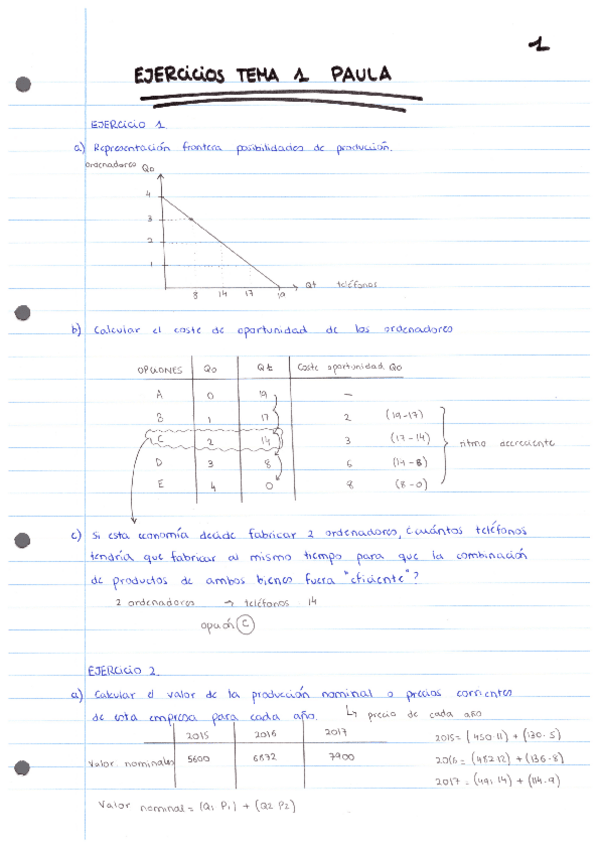 1
EJERCICIOS TEMA 1 PAULA
EJERCICIO 1
a) Representación frontera posibilidades de producción.
ordenadores Qo
4
3
2
1
8 14 17 19 Qt teléfonos
b) Calcular el coste de oportunidad de los ordenadores
OPCIONES Qo Qt Coste oportunidad Qo
A 0 19 —
B 1 17 2 (19-17)
C 2 14 3 (17-14) ritmo
D 3 8 6 (14-8)
E 4 0 8 (8-0)
c) Si esta economía decide fabricar 2 ordenadores, ¿cuántos teléfonos
tendría que fabricar al mismo tiempo para que la combinación
de productos de ambos bienes fuera "eficiente"?
2 ordenadores → teléfonos 14
opción C
EJERCICIO 2.
a) Calcular el valor de la producción nominal o precios corrientes
de esta empresa para cada año. ↳ precio de cada año
2015 2016 2017
Valor nominales 5600 6872 7900
2015= (450·11) + (130·5)
2016= (482·12) + (136·8)
2017= (491·14) + (114·9)
Valor nominal = (Q1 P1) + (Q2 P2)